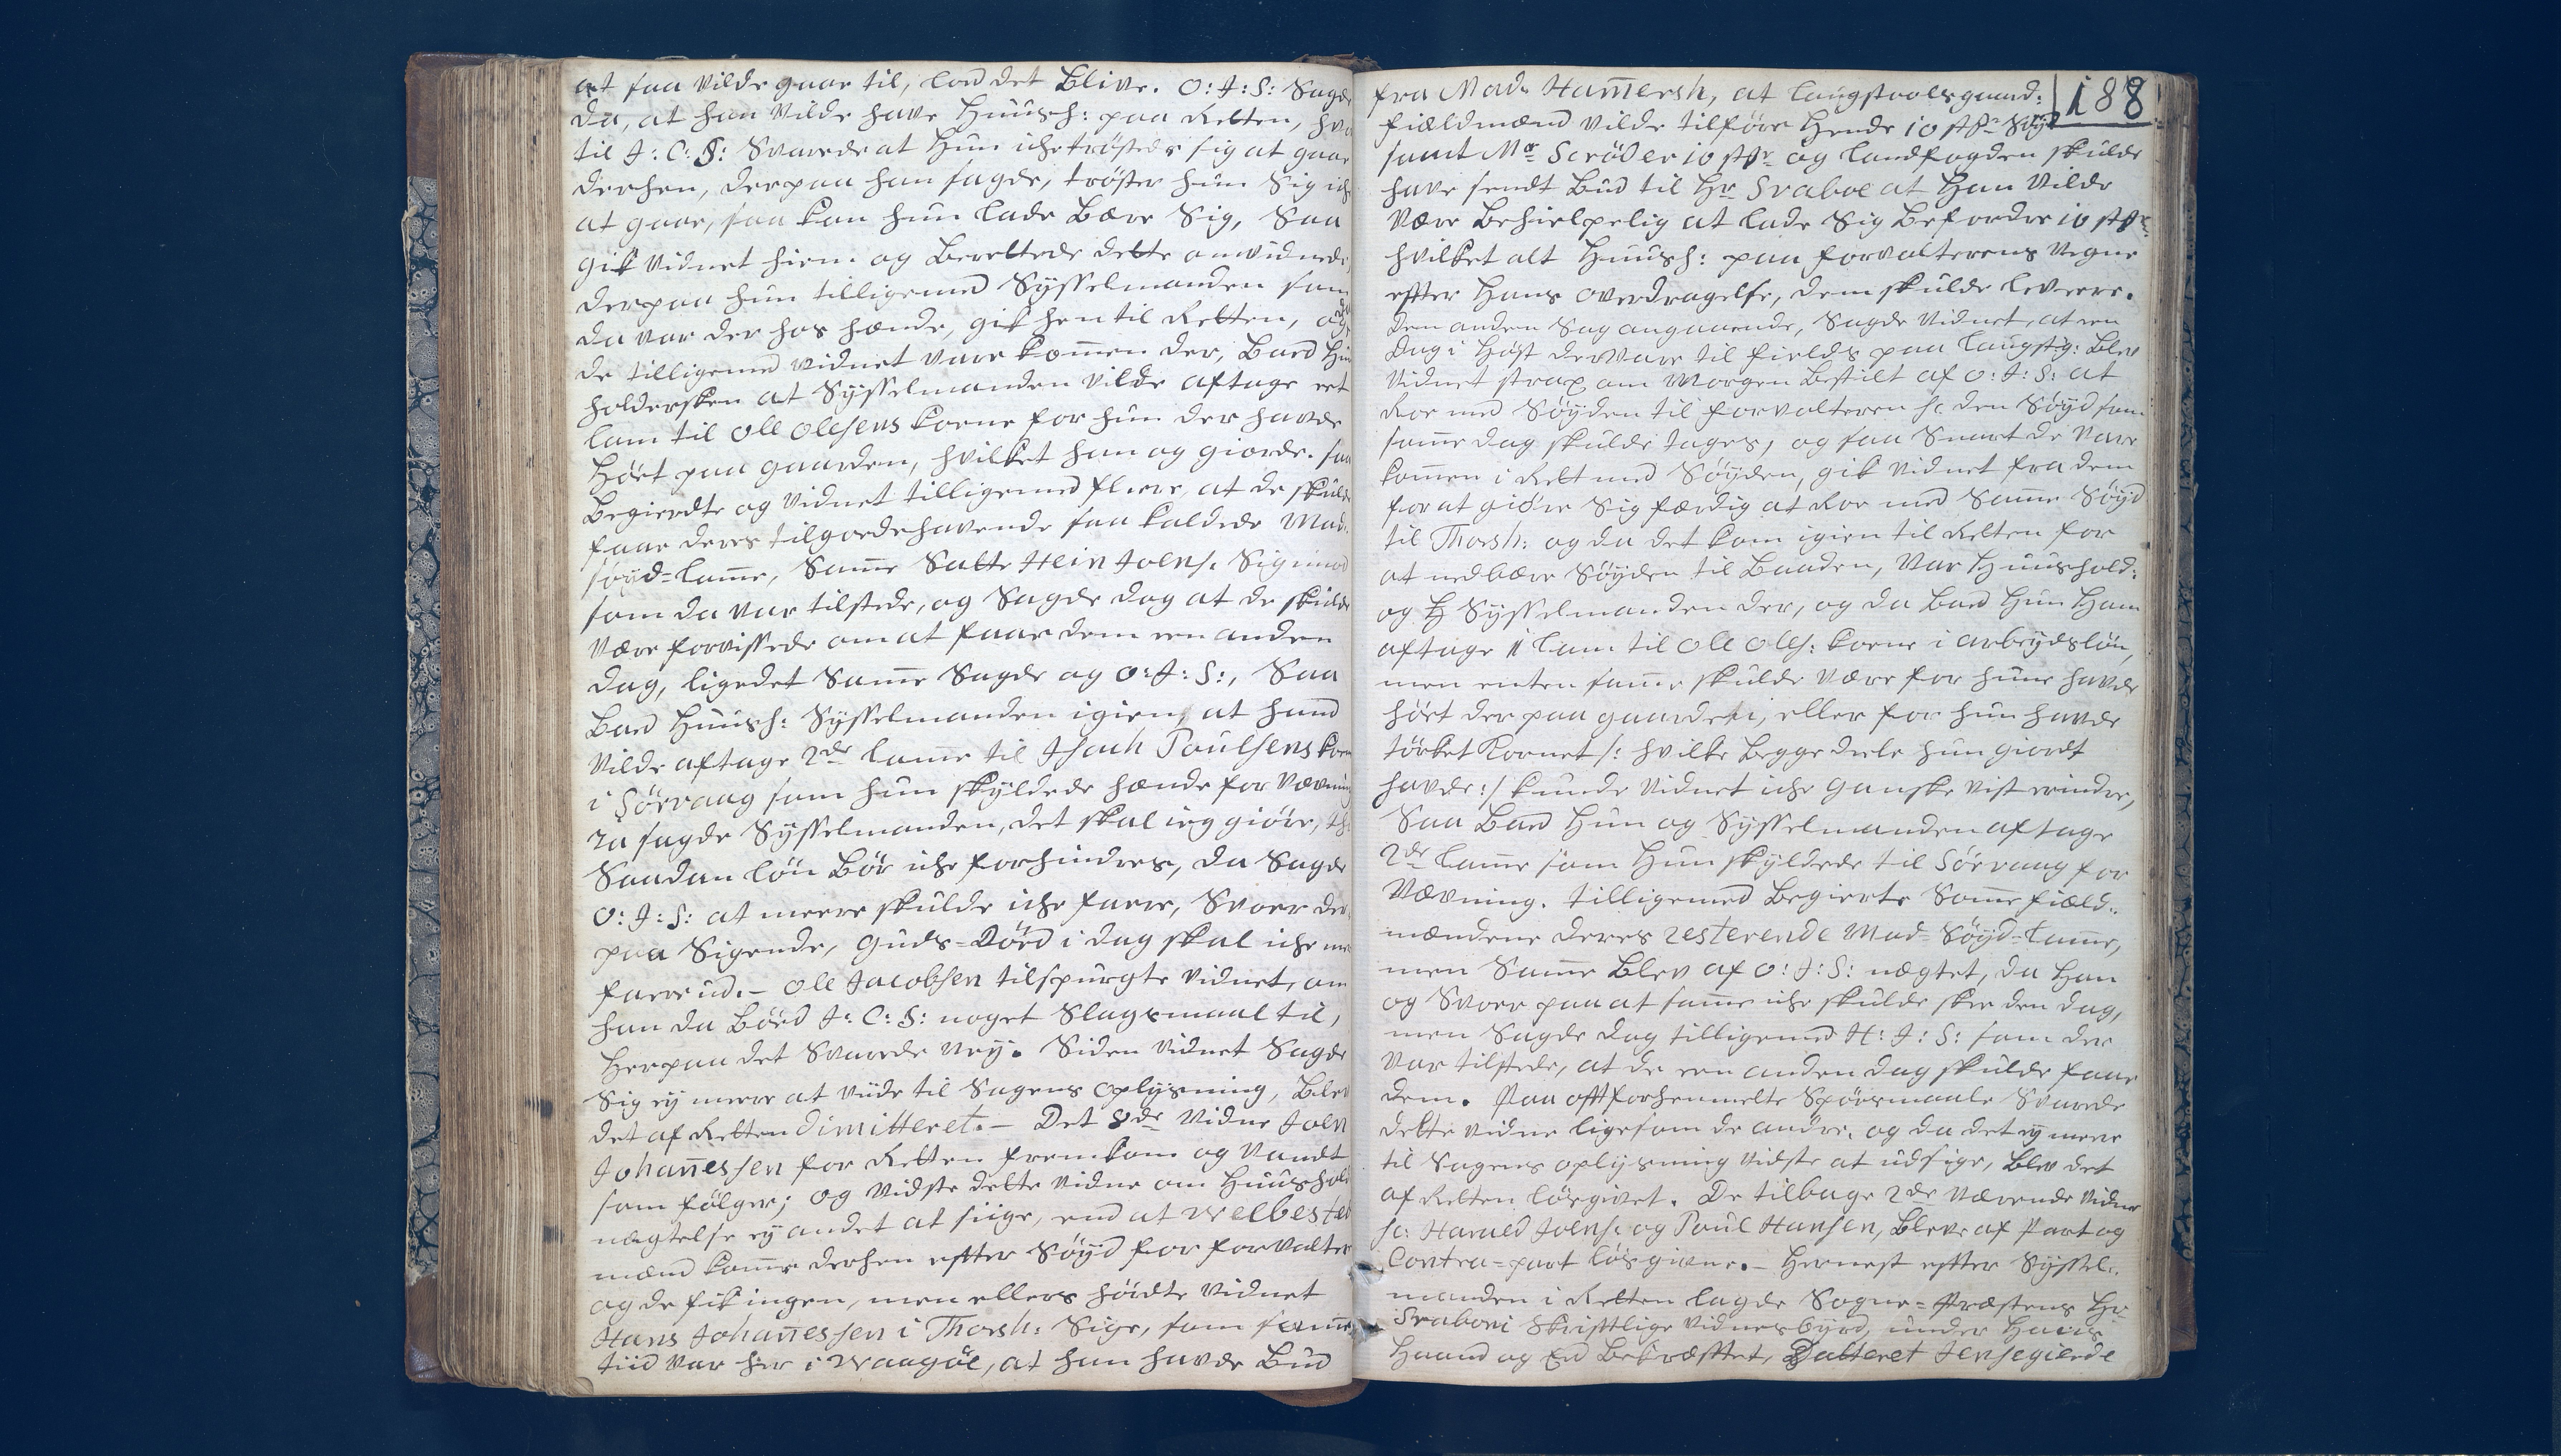 at saa vilde gaae til, lod det Blive. O: J: S: Sagde
da, at han vilde have Huush: paa Retten, hvor
til J: C: S: Svarede at Hun iche trøstede sig at gaae
derhen, derpaa han sagde, trøster hun Sig iche
at gaae, saa kan hun lade Bære Sig, Saa
gik Vidnet hiem og Berettede dette omvidnede,
derpaa hun tilligemed Sysselmanden som
da var der hos hænde, gik hen til Retten, og da
de tilligemed vidnet vare komen der, Bad Huus
holdersken at Sysselmanden vilde aftage eet
lam til Ole Olesens kone for hun der havde
Hört paa gaarden, hvilket han og giorde. saa
Begierdte og Vidnet tilligemed fleere, at de skulde
faae deres tilgodehavende saa kaldede Mad-
søyd-lame, Same Satte Hein Joens: Sig imod
som da var tilstede, og Sagde dog at de skulde
være forvissede om at faae dem een anden
dag, ligedet Same Sagde og O: J: S:, Saa
Bad Huush: Sysselmanden igien, at hand
vilde aftage 2de lame til Isach Poulsens kone
i Sörvaag som hun skyldede hænde for vævning
Ja sagde Sysselmanden, det skal ieg giöre, thi
Saadan løn Bör iche forhindres, da Sagde
O: J: S: at meere skulde iche faaes, Svoer der
paa Sigende, Guds-Död i dag skal iche meere
faaes ud. - Ole Jacobsen tilspurgte Vidnet, om
han da Böd J: C: S: noget Slagsmaal til,
Herpaa det Svarede Ney. Siden Vidnet Sagde
Sig ey meere at viide til Sagens oplysning, Blev
det af Retten dimitteret. - Det 8de Vidne Joen
Johañessen for Retten fremkom og Vandt
som fölger; og vidste dette vidne om Huushold
nægtelse ey andet at siige, end at velbested
mænd kome derhen efter Søyd for forvalter
og de fik ingen, men ellers hördte Vidnet
Hans Johañessen i Thorsh: Sige, som same
tiid var her i Waagöe, at han havde Bud
188
fra Made Hamersh, at laugstoelsgaard:
fieldmænd vilde tilføre Hende 10 stkr Søyd
samt Mr Scröder 10 stkr og landfogden skulde
have sendt Bud til Hr Svaboe at Han vilde
være Behielpelig at lade Sig Befordre 10 stkr
hvilket alt Huush: paa forvalterens Vegne
efter Hans overdragelse, dem skulde levere.
den anden Sag angaaende, Sagde Vidnet, at een
Dag i Höst der vare til fields paa laugstg: Blev
Vidnet strax om Morgen Bestilt af O: J: S: at
Roe med Søyden til forvalteren sc. den Søyd som
same dag skulde tages, og saa Snart de vare
komen i Rett med Søyden, gik Vidnet fra dem
for at giöre Sig færdig at Roe med Same Søyd
til Thorsh: og da det kom igien til Retten for
at nedbære Søyden til Baaden, var Huushold:
og Sysselmanden der, og da Bad Hun Ham
aftage 1 lam til Ole Oles: kone i arbeydsløn,
men enten same skulde være for hun havde
hört der paa gaarden, eller for hun havde
törket Kornet /: hvilke begge deele hun giordt
havde :/ kunde Vidnet iche ganske vist erindre,
Saa Bad Hun og Sysselmanden aftage
2de lame som Hun skyldede til Sörvaag for
Vævning. tilligemed Begierte Same field-
mændene deres resterende Mad-Søyd-lame,
men Same Blev af O: J: S: nægtet, da Han
og Svoer paa at same iche skulde skee den dag,
men Sagde dog tilligemed H: J: S: som der
var tilstede, at de een anden dag skulde faae
dem. Paa oftforhenmelte Spörsmaale Svarede
dette vidne ligesom de andre, og da det ey meere
til Sagens oplysning vidste at udsige, Blev det
af Retten lösgivet. De tilbage 2de værende Vidner
sc: Harald Joens: og Poul Hansen, Bleve af Part og
Contra-part lösgivne. - Hernest efter Syssel-
manden i Retten lagde Sogne-Præstens Hr
Svaboni Skriftlige Vidnesbyrd, under Hans
Haand og Eed Bekræftet, Datteret Jensegierde